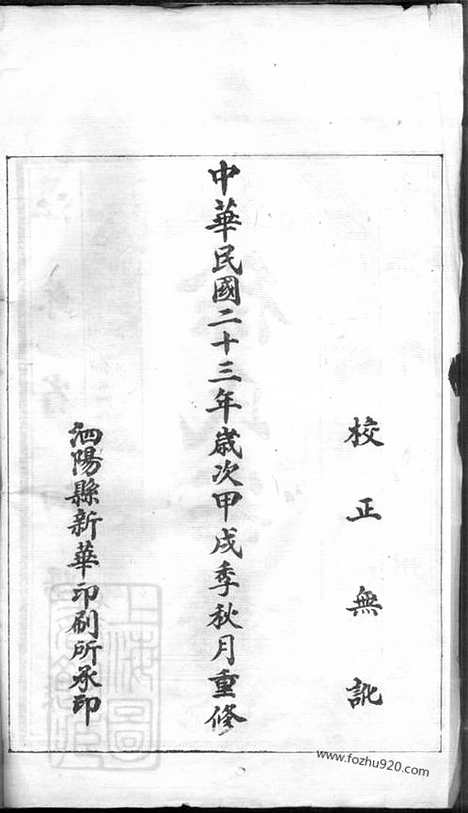 校正無訛
中華民國二十三年歲次甲戌季秋月重修
泗陽縣新華印刷所承印
www.fozhu920.com